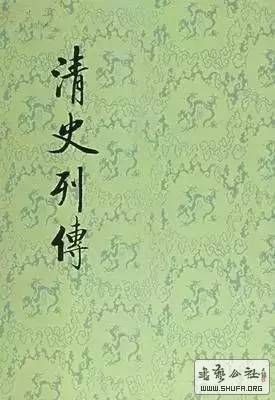 清史列傳
書藝公社
WWW.SHUFA.ORG